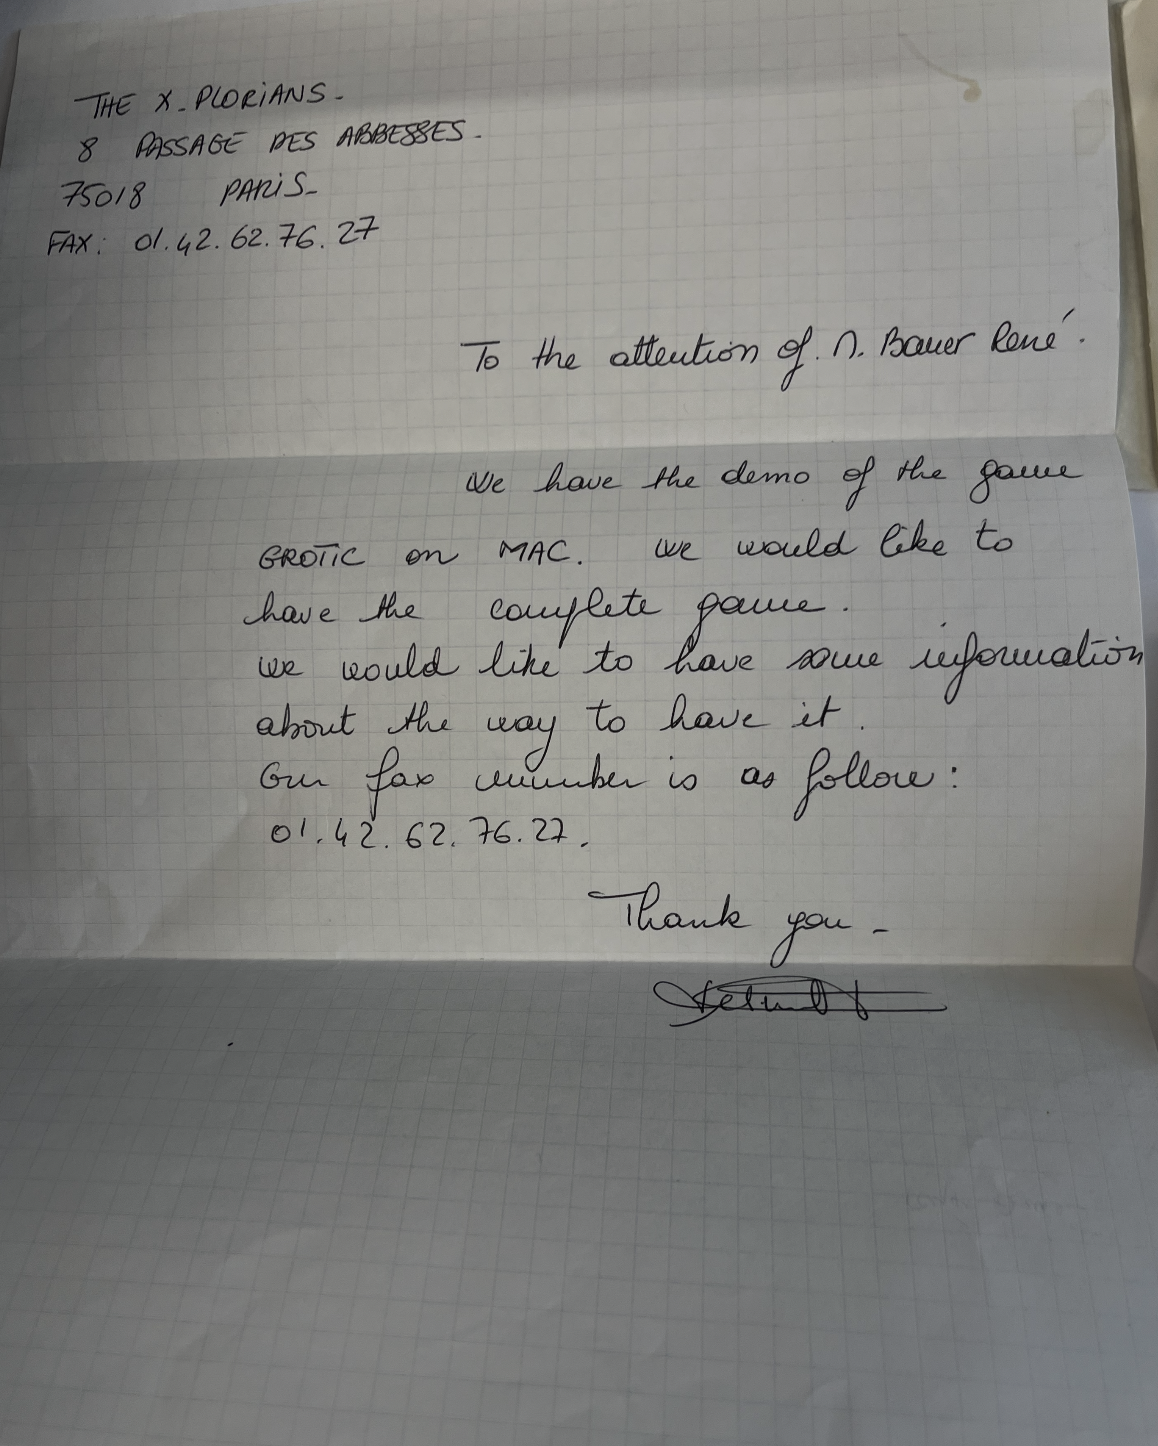 THE X-PLORIANS-
8 PASSAGE DES ABBESSES-
75018 PARIS-
FAX: 01.42.62.76.27
To the attention of. M. Bauer René.
We have the demo of the game
GROTIC on MAC. We would like to
have the complete game.
We would like to have some information
about the way to have it.
Our fax number is as follow:
01.42.62.76.27.
Thank you-